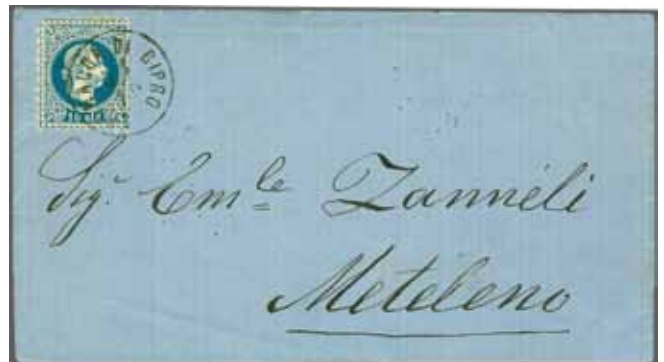 DI CIPRO
Sigr. Emle Zannéli
Meteleno